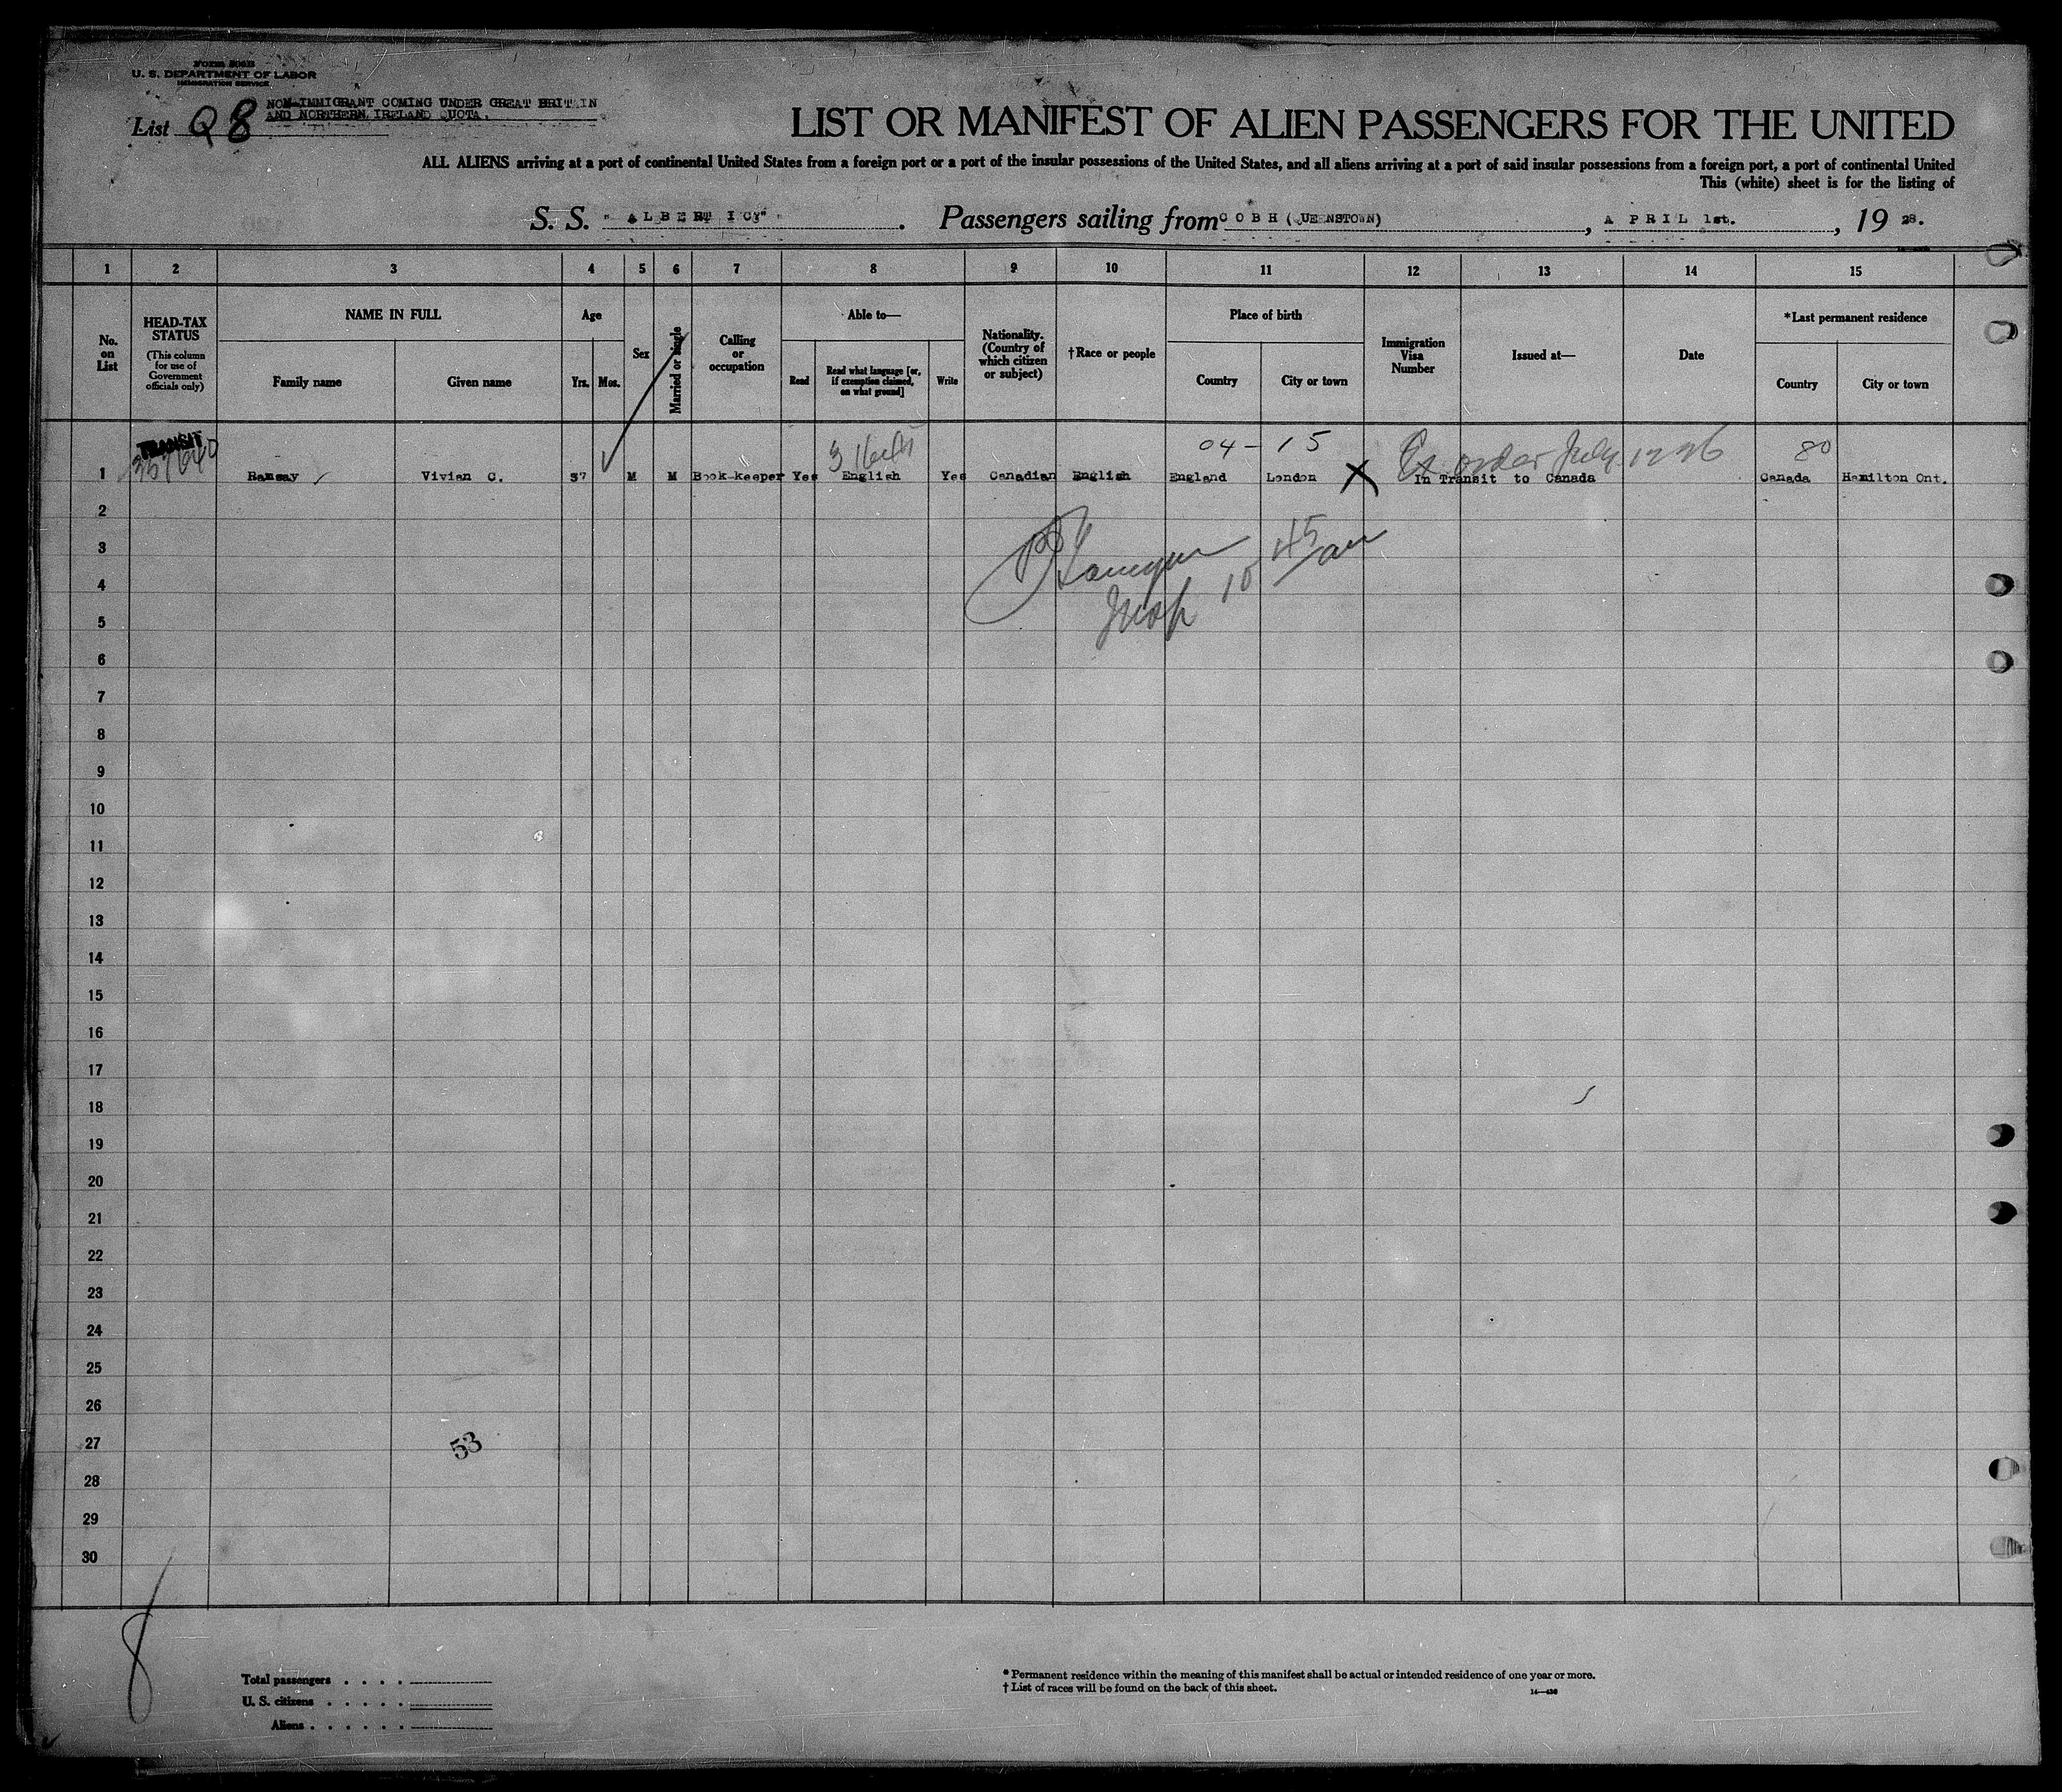 Form 500B
U. S. DEPARTMENT OF LABOR
IMMIGRATION SERVICE
NON-IMMIGRANT COMING UNDER GREAT BRITAIN
AND NORTHERN IRELAND QUOTA.
List Q 8
LIST OR MANIFEST OF ALIEN PASSENGERS FOR THE UNITED
ALL ALIENS arriving at a port of continental United States from a foreign port or a port of the insular possessions of the United States, and all aliens arriving at a port of said insular possessions from a foreign port, a port of continental United
This (white) sheet is for the listing of
S. S. "ALBERT ICY" . Passengers sailing from COBH (QUEENSTOWN) , APRIL 1st. , 19 28.
1 2 3 4 5 6 7 8 9 10 11 12 13 14 15
No. on List
HEAD-TAX STATUS
(This column for use of Government officials only)
NAME IN FULL
Family name
Given name
Age
Yrs.
Mos.
Sex
Married or single
Calling or occupation
Able to—
Read
Read what language [or, if exemption claimed, on what ground]
Write
Nationality. (Country of which citizen or subject)
†Race or people
Place of birth
Country
City or town
Immigration Visa Number
Issued at—
Date
*Last permanent residence
Country
City or town
TRANSIT
04 - 15
Ex order July 12 26
80
1 Ramsay Vivian C. 37 M M Book-keeper Yes English Yes Canadian English England London X In Transit to Canada Canada Hamilton Ont.
2
3
4
5
Insp 10 45/am
6
7
8
9
10
11
12
13
14
15
16
17
18
19
20
21
22
23
24
25
26
27
53
28
29
30
8
Total passengers . . . .
U. S. citizens . . . . .
Aliens . . . . . .
* Permanent residence within the meaning of this manifest shall be actual or intended residence of one year or more.
† List of races will be found on the back of this sheet.